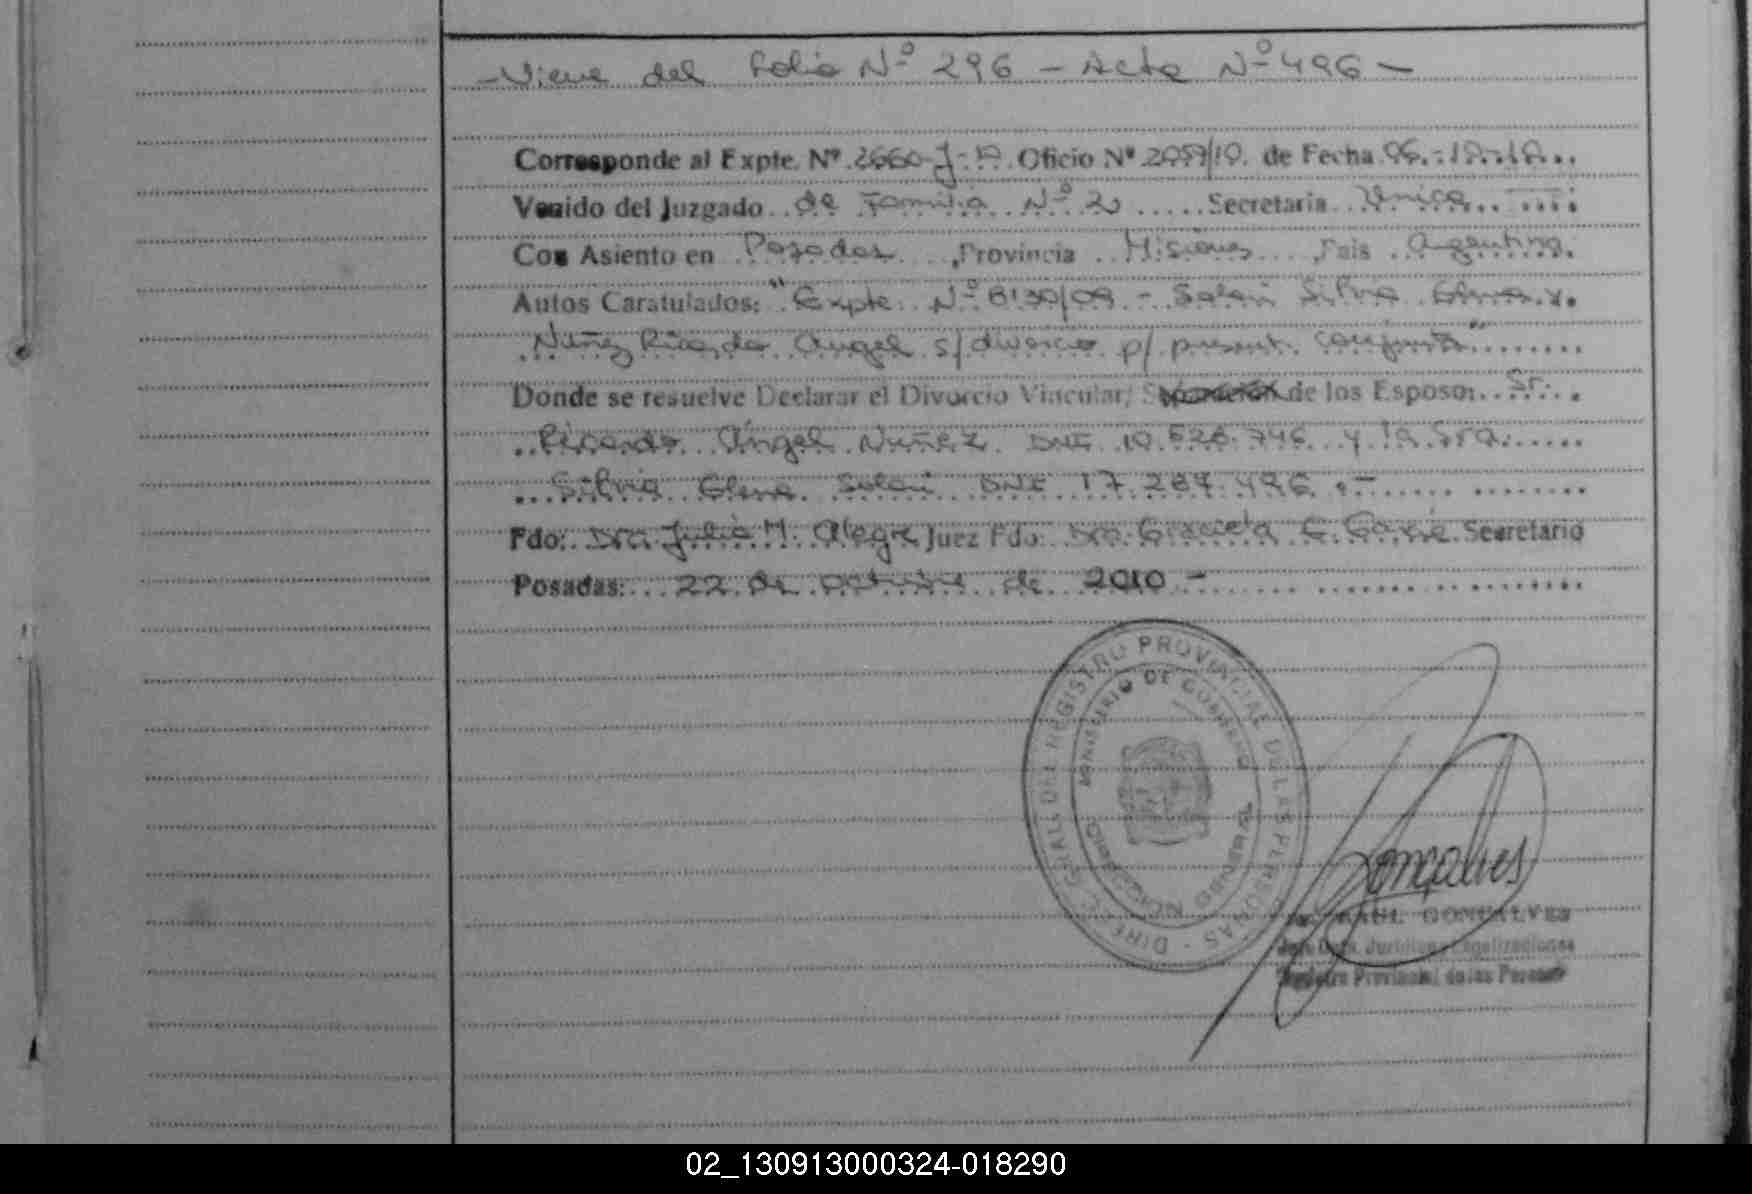 -Viene del Folio Nº 296 - Acta Nº 496 -
Corresponde al Expte. Nº 2660-J-10 Oficio Nº 2059/10. de Fecha 06.-10-10..
Venido del Juzgado de Familia Nº 2 Secretaria Unica
Con Asiento en Posadas, Provincia Misiones, Pais Argentina.
Autos Caratulados: "Expte. Nº 8130/09 - Solari Silvia Elena y.
Nuñez Ricardo Angel s/ divorcio p/ present. conjunta"
Donde se resuelve Declarar el Divorcio Vincular/ Separación de los Esposos: Sr.
Ricardo Angel Nuñez DNI 10.626.746 y la Sra.
Silvia Elena Solari DNI 17.287.496.-
Fdo: Dra. Julia M. Alegre Juez Fdo: Dra. Graciela C. Secretario
Posadas: 22 de octubre de 2010 -
DIRECC. GRAL. DEL REGISTRO PROVINCIAL DE LAS PERSONAS
MINISTERIO DE GOBIERNO
Gonçalves
RAUL GONCALVES
Jefe Dpto. Legalizaciones
Registro Provincial de las Personas
02_130913000324-018290